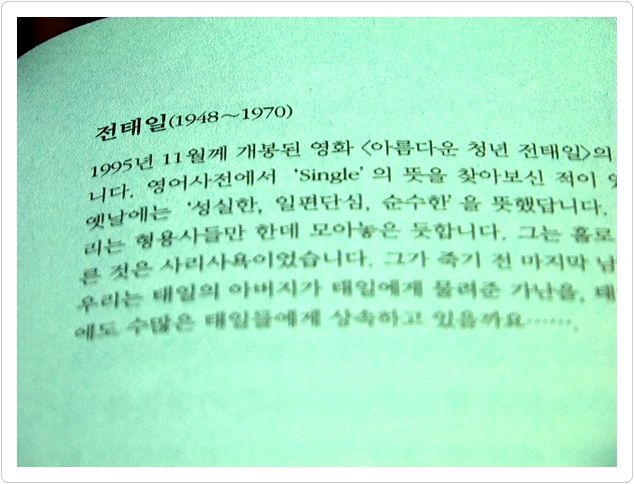 전태일(1948~1970)
1995년 11월께 개봉된 영화 <아름다운 청년 전태일>의
니다. 영어사전에서 'Single'의 뜻을 찾아보신 적이
옛날에는 '성실한, 일편단심, 순수한'을 뜻했답니다.
리는 형용사들만 한데 모아놓은 듯합니다. 그는 홀로
른 것은 사리사욕이었습니다. 그가 죽기 전 마지막
우리는 태일의 아버지가 태일에게 물려준 가난을,
에도 수많은 태일들에게 상속하고 있을까요…….